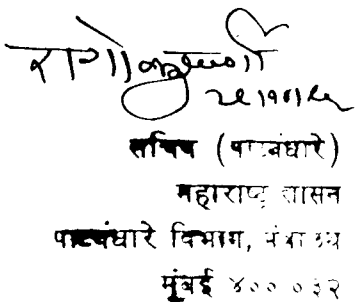 रा गो कुलकर्णी
सचिव (पाटबंधारे)
महाराष्ट्र शासन
पाटबंधारे विभाग, मंत्रालय
मुंबई ४०० ०३२